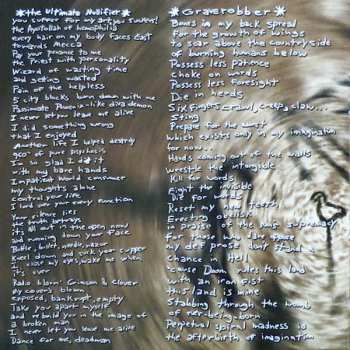 *the Ultimate Nullifier*
you suffer for my art you
The Ayatollah of hemophilia
every hair on my body faces East
towards Mecca
Put your trust in me
the Priest with personality
Wizard of wasting time
and getting wasted
Pain of the helpless
5 city blocks burn down with me
Passionate diva demon
I never let you leave me alive
I did something wrong
that I enjoyed
Another life I helped destroy
pure
I'm so glad I did it
with my bare hands
Impatient Kool consumer
my thoughts alive
control your life
I and use your every function
Your silence lies
the truth betrays
it's all out in the open now
and running down your face
Bottle, bullet, needle, razor
Kneel down and suck your supper
close your eyes, wake me when
it's over
Crimson & Clover
My covers blown
exposed, bankrupt, empty
Take you apart myself
and rebuild you in the image of
a broken man
I never let you leave me alive
Dance for me, deadman
*Graverobber*
Bones in my back spread
for the growth of wings
to soar above the countryside
of burning humans below
Possess less patience
choke on words
Possess less foresight
Die in herds
Six fingers crawl, creep, claw...
Sting
Prepare for the worst
which exists only in my imagination
for now...
Hands coming out of the walls
wrestle the intangible
Kill for words
Fight the invisible
Die for words
Reset my new teeth
Erecting obelisk
in praise of the new supremacy
for those who dare oppose
my def prose don't stand a
Chance in Hell
'cause Doom rules this land
with an iron fist
this land is mine
Stabbing through the womb
of never-being-born
Perpetual spiral madness is
the afterbirth of imagination